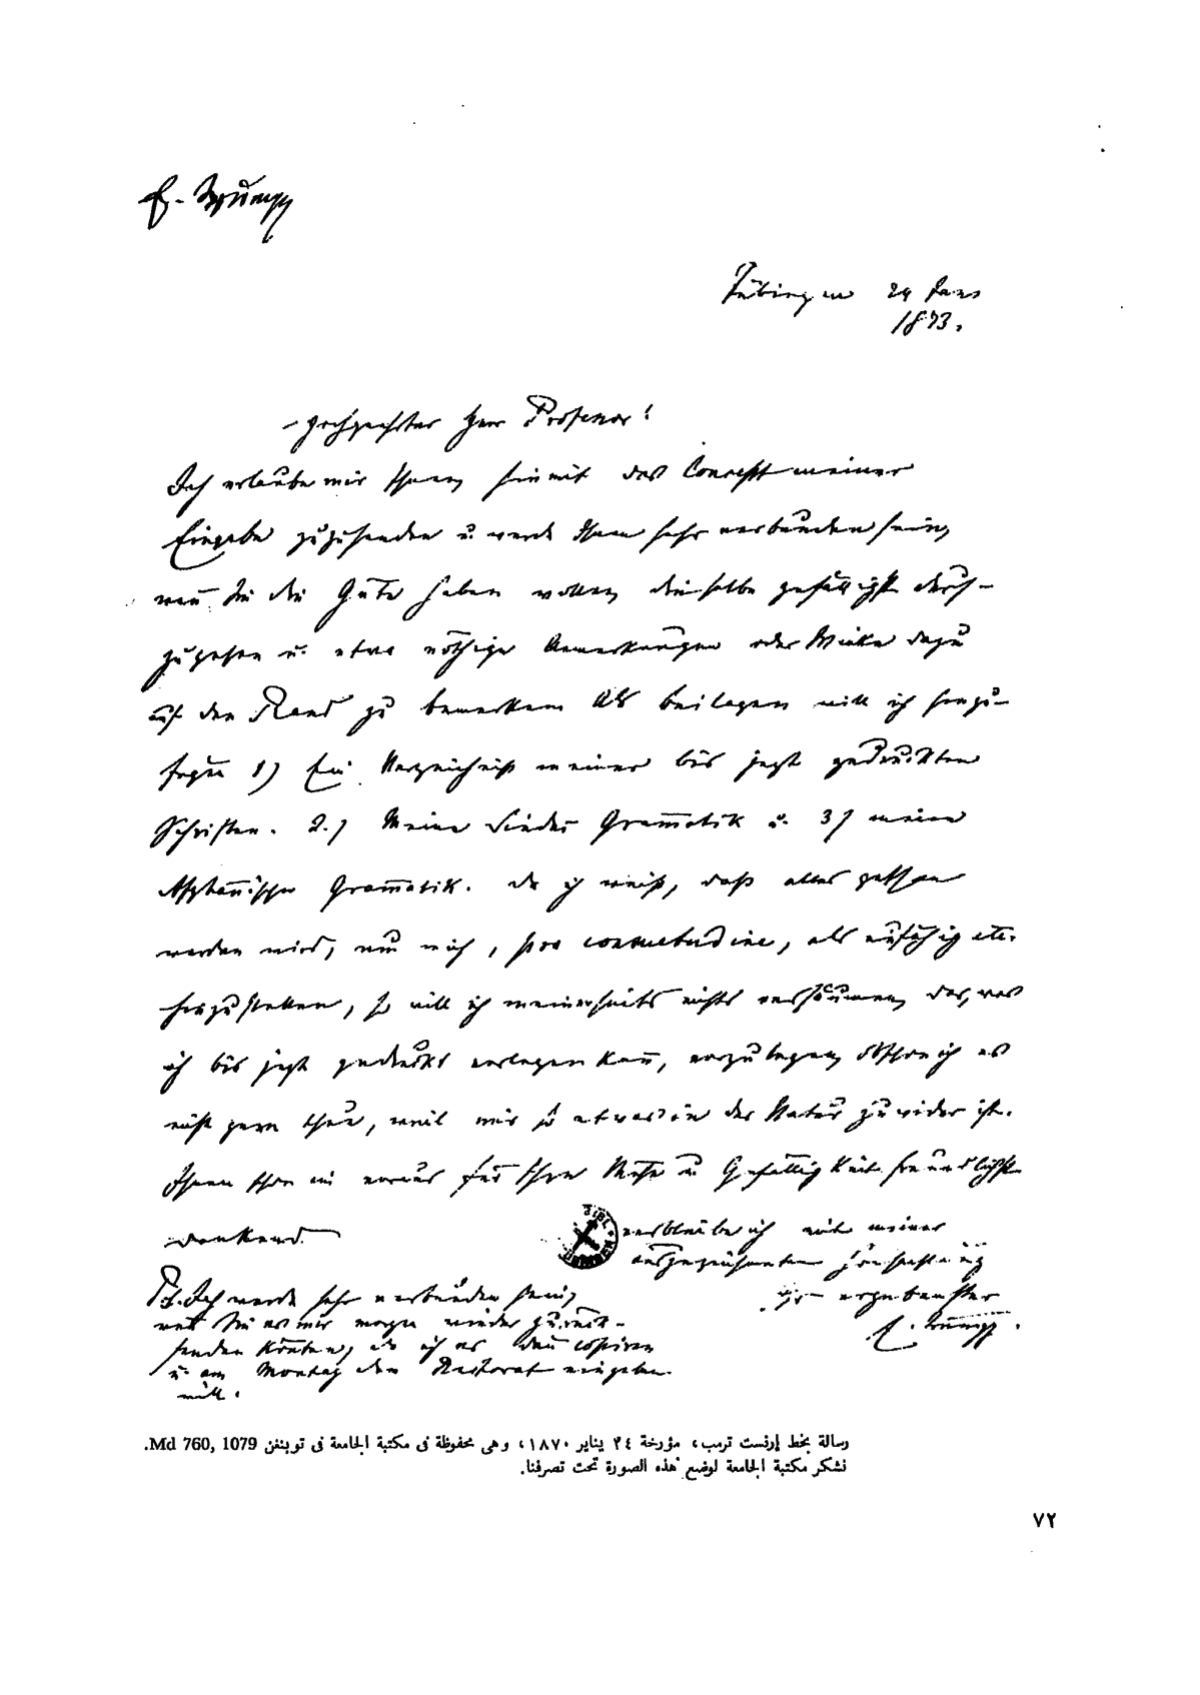 E. Trumpp
Tübingen 24 Jan.
1873.
Hochgeehrter Herr Professor!
Ich erlaube mir Ihnen hiemit das Concept meiner
Eingabe zuzusenden u. werde Ihnen sehr verbunden sein,
wenn Sie die Güte haben wollen, dieselbe gefälligst durch-
zugehen u. etwa nöthige Anmerkungen oder Winke dazu
auf den Rand zu bemerken. Als Beilagen will ich hinzu-
fügen 1) Ein Verzeichniß meiner bis jetzt gedruckten
Schriften. 2.) Meine Sindhi Grammatik u. 3) meine
Afghanische Grammatik. Da ich weiß, daß alles gethan
werden wird, um mich, pro consuetudine, als unfähig etc.
hinzustellen, so will ich meinerseits nichts versäumen, das, was
ich bis jetzt gedruckt vorlegen kann, vorzulegen, obschon ich es
nicht gern thue, weil mir so etwas in der Natur zuwider ist.
Ihnen schon im voraus für Ihre Mühe u. Gefälligkeit freundlichst
dankend
verbleibe ich mit meiner
ausgezeichneten Hochachtung
Ihr ergebenster
E. Trumpp.
P.S. Ich werde sehr verbunden sein,
wenn Sie es mir morgen wieder zurück-
senden könnten, da ich es dann copiren
u. am Montag dem Rectorat eingeben
will.
رسالة بخط إرنست ترمب، مؤرخة ٢٤ يناير ١٨٧٠، وهى محفوظة فى مكتبة الجامعة فى توبنغن Md 760, 1079.
نشكر مكتبة الجامعة لوضع هذه الصورة تحت تصرفنا.
٧٢